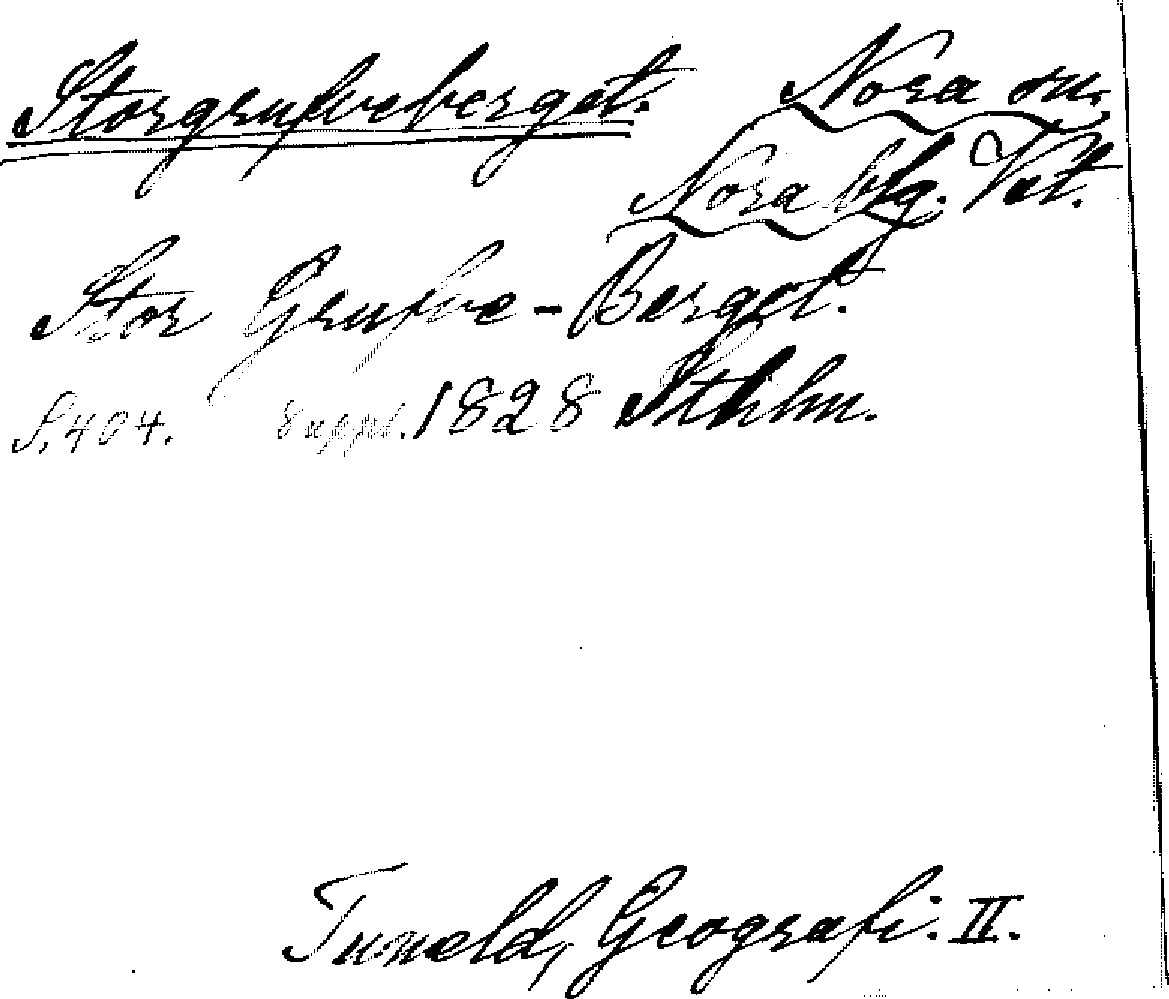 Storgrufveberget. Nora sn.
Nora bg. Vst.
Stor Grufve-Berget.
S. 404. Suppl. 1828 Sthlm.
Tuneld, Geografi. II.